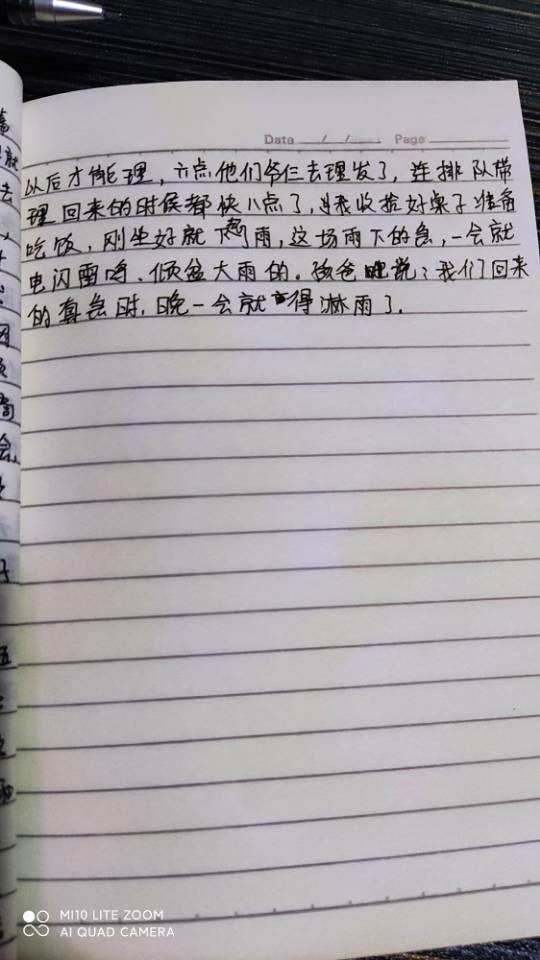 Date / / Page
以后才能理，六点他们爷仨去理发了，连排队带
理回来的时候都快八点了，我收拾好桌子准备
吃饭，刚坐好就下起雨，这场雨下的急，一会就
电闪雷鸣、倾盆大雨的。孩爸说：我们回来
的真急时，晚一会就得淋雨了。
MI10 LITE ZOOM
AI QUAD CAMERA